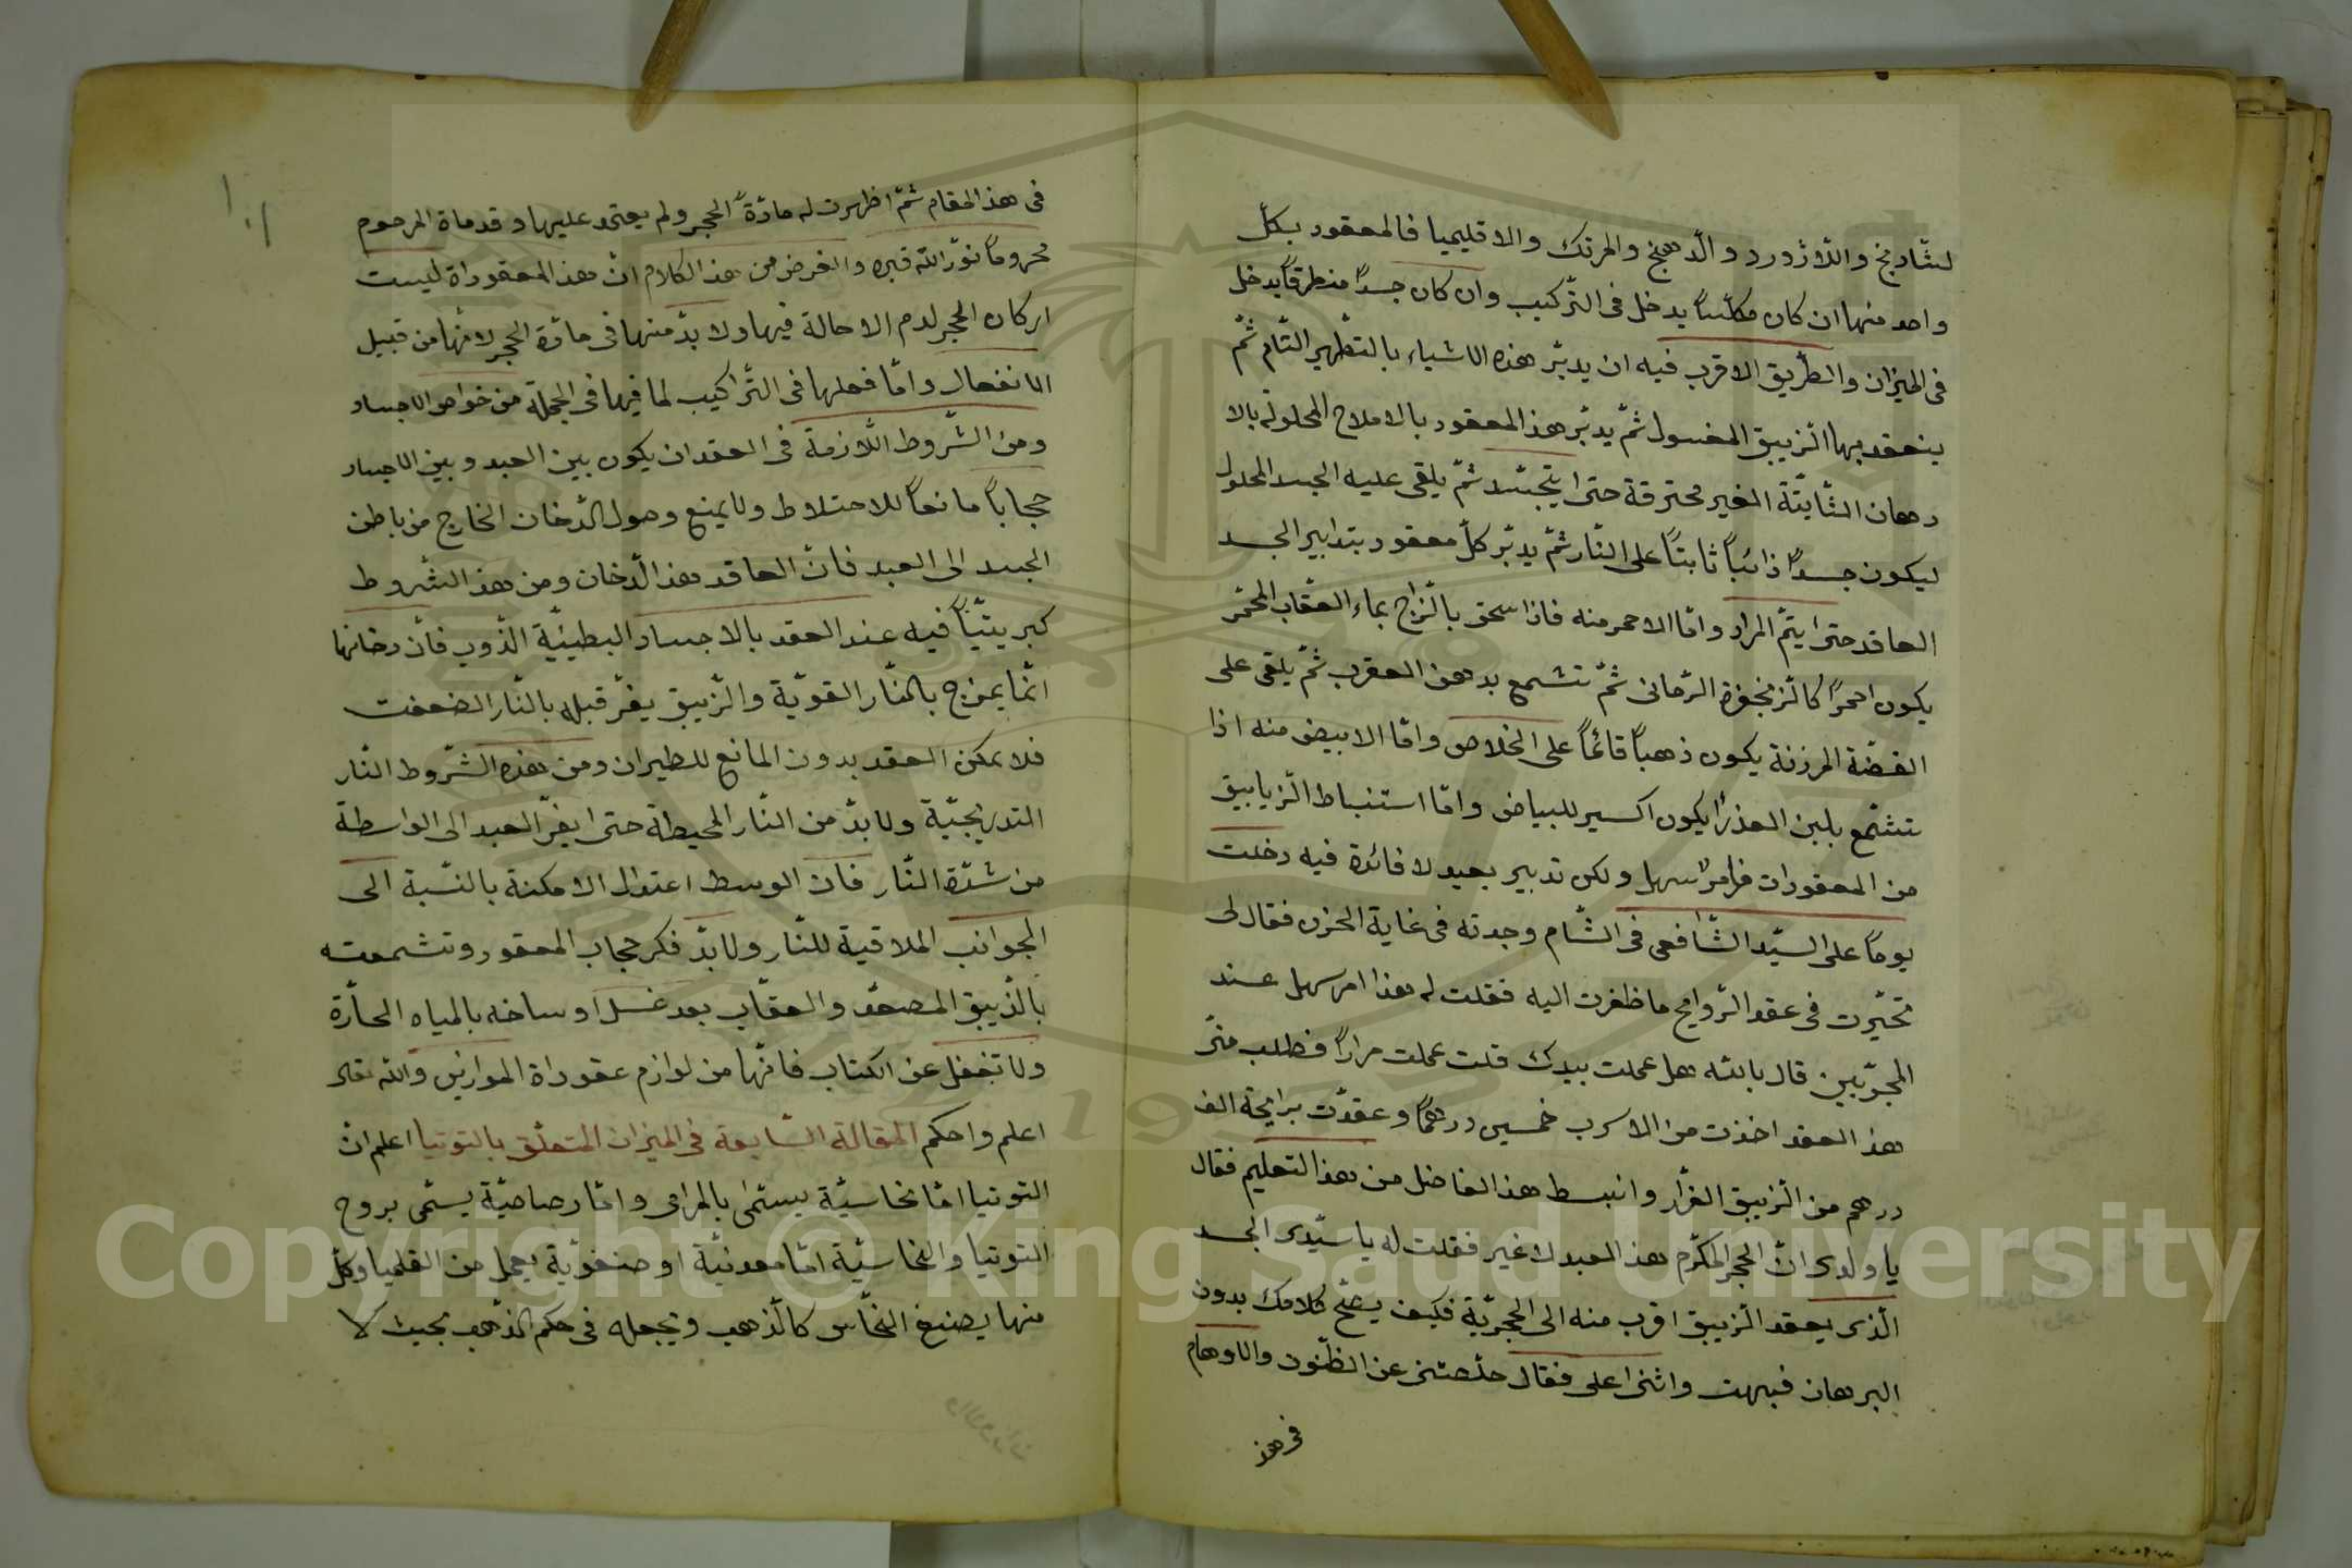 لشادنج واللاژورد والدهنج والمرتك والاقليميا فالمعقود بكل
واحد منها ان كان مكلسًا يدخل فى التركيب وان كان جسدًا منطرقًا يدخل
فى الميزان والطريق الاقرب فيه ان يدبّر هذه الاشياء بالتطهير التام ثمّ
ينعقد بها الزيبق المغسول ثمّ يدبّر هذ المعقود بالاملاح المحلولة بالا
دهان الثابتة الغير محترقة حتى يتجسّد ثمّ يلقى عليه الجسد المحلول
ليكون جسدًا ذائبًا ثابتًا على النار ثمّ يدبّر كلّ معقود بتدابير الجسد
العاقد حتى يتمّ المراد وامّا الاحمر منه فاذا سحق بالزاج بماء العقاب المحمّر
يكون احمرًا كالزنجفرة الرمانى ثمّ تشمع بدهن العقرب ثمّ يلقى على
الفضّة المرزنة يكون ذهبًا قائمًا على الخلاص وامّا الابيض منه اذا
تشمّع بلبن العذرا يكون اكسير للبياض وامّا استنباط الزيابيق
من المعقودات فامر سهل ولكن تدبير بعيد لا فائدة فيه دخلت
يومًا على السيّد الشافعى فى الشام وجدته فى غاية الحزن فقال لى
تحيّرت فى عقد الروايح ما ظفرت اليه فقلت له هذا امر سهل عند
المجرّبين قال بالله هل عملت بيدك قلت عملت مرارًا فطلب منّى
هذ العقد اخذت من الاسرب خمسين درهمًا وعقدت برايحة الف
درهم من الزيبق الفرار وانبسط هذ الفاضل من هذ التعليم فقال
يا ولدى انّ الحجر المكرّم هذ العبد لا غير فقلت له يا سيّدى الجسد
الذى يعقد الزيبق اقرب منه الى الحجريّة فكيف يصحّ كلامك بدون
البرهان فبهت واثنى على فقال خلصتنى عن الظنون والاوهام
فى هذ
فى هذ المقام ثمّ اظهرت له مادّة الحجر ولم يعتمد عليها وقد ماة المرحوم
محرومًا نوّر الله قبره والغرض من هذ الكلام انّ هذ المعقوداة ليست
اركان الحجر لدم الاحالة فيها ولا بدّ منها فى مادّة الحجر لانّها من قبيل
الانفعال وامّا فعلها فى التراكيب لما فيها فى الجملة من خواص الاجساد
ومن الشروط اللازمة فى العقد ان يكون بين العبد وبين الاجساد
حجابًا مانعًا للاختلاط ولا يمنع وصول الدخان الخارج من باطن
الجسد الى العبد فانّ العاقد هذ الدخان ومن هذ الشروط
كبريتيًا فيه عند العقد بالاجساد البطيئية الذوب فانّ دخانها
انّما يمزج بالنّار القويّة والزيبق يفرّ قبله بالنّار الضعفت
فلا يمكن العقد بدون المانع للطيران ومن هذه الشروط النار
التدريجيّة ولا بدّ من النّار المحيطة حتى يفرّ العبد الى الواسطة
من شدّة النّار فان الوسط اعتدل الامكنة بالنسبة الى
الجوانب الملاقية للنّار ولا بدّ فكر حجاب المعقود وتشمعته
بالذيبق المصعّد والعقاب بعد غسل اوساخه بالمياه الحارّة
ولا تغفل عن الكتاب فانّها من لوازم عقوداة الموازين والله تعالى
اعلم واحكم المقالة السّابعة فى الميزان المتعلّق بالتوتيا اعلم انّ
التوتيا امّا نحاسيّة يسمّى بالمرامى وامّا رصاصيّة يسمّى بروح
التوتيا والنحاسيّة امّا معدنيّة او مصنوعيّة يعمل من القلميا وكلّ
منها يصبغ النحاس كالذهب ويجعله فى حكم الذهب بحيث لا
Copyright © King Saud University